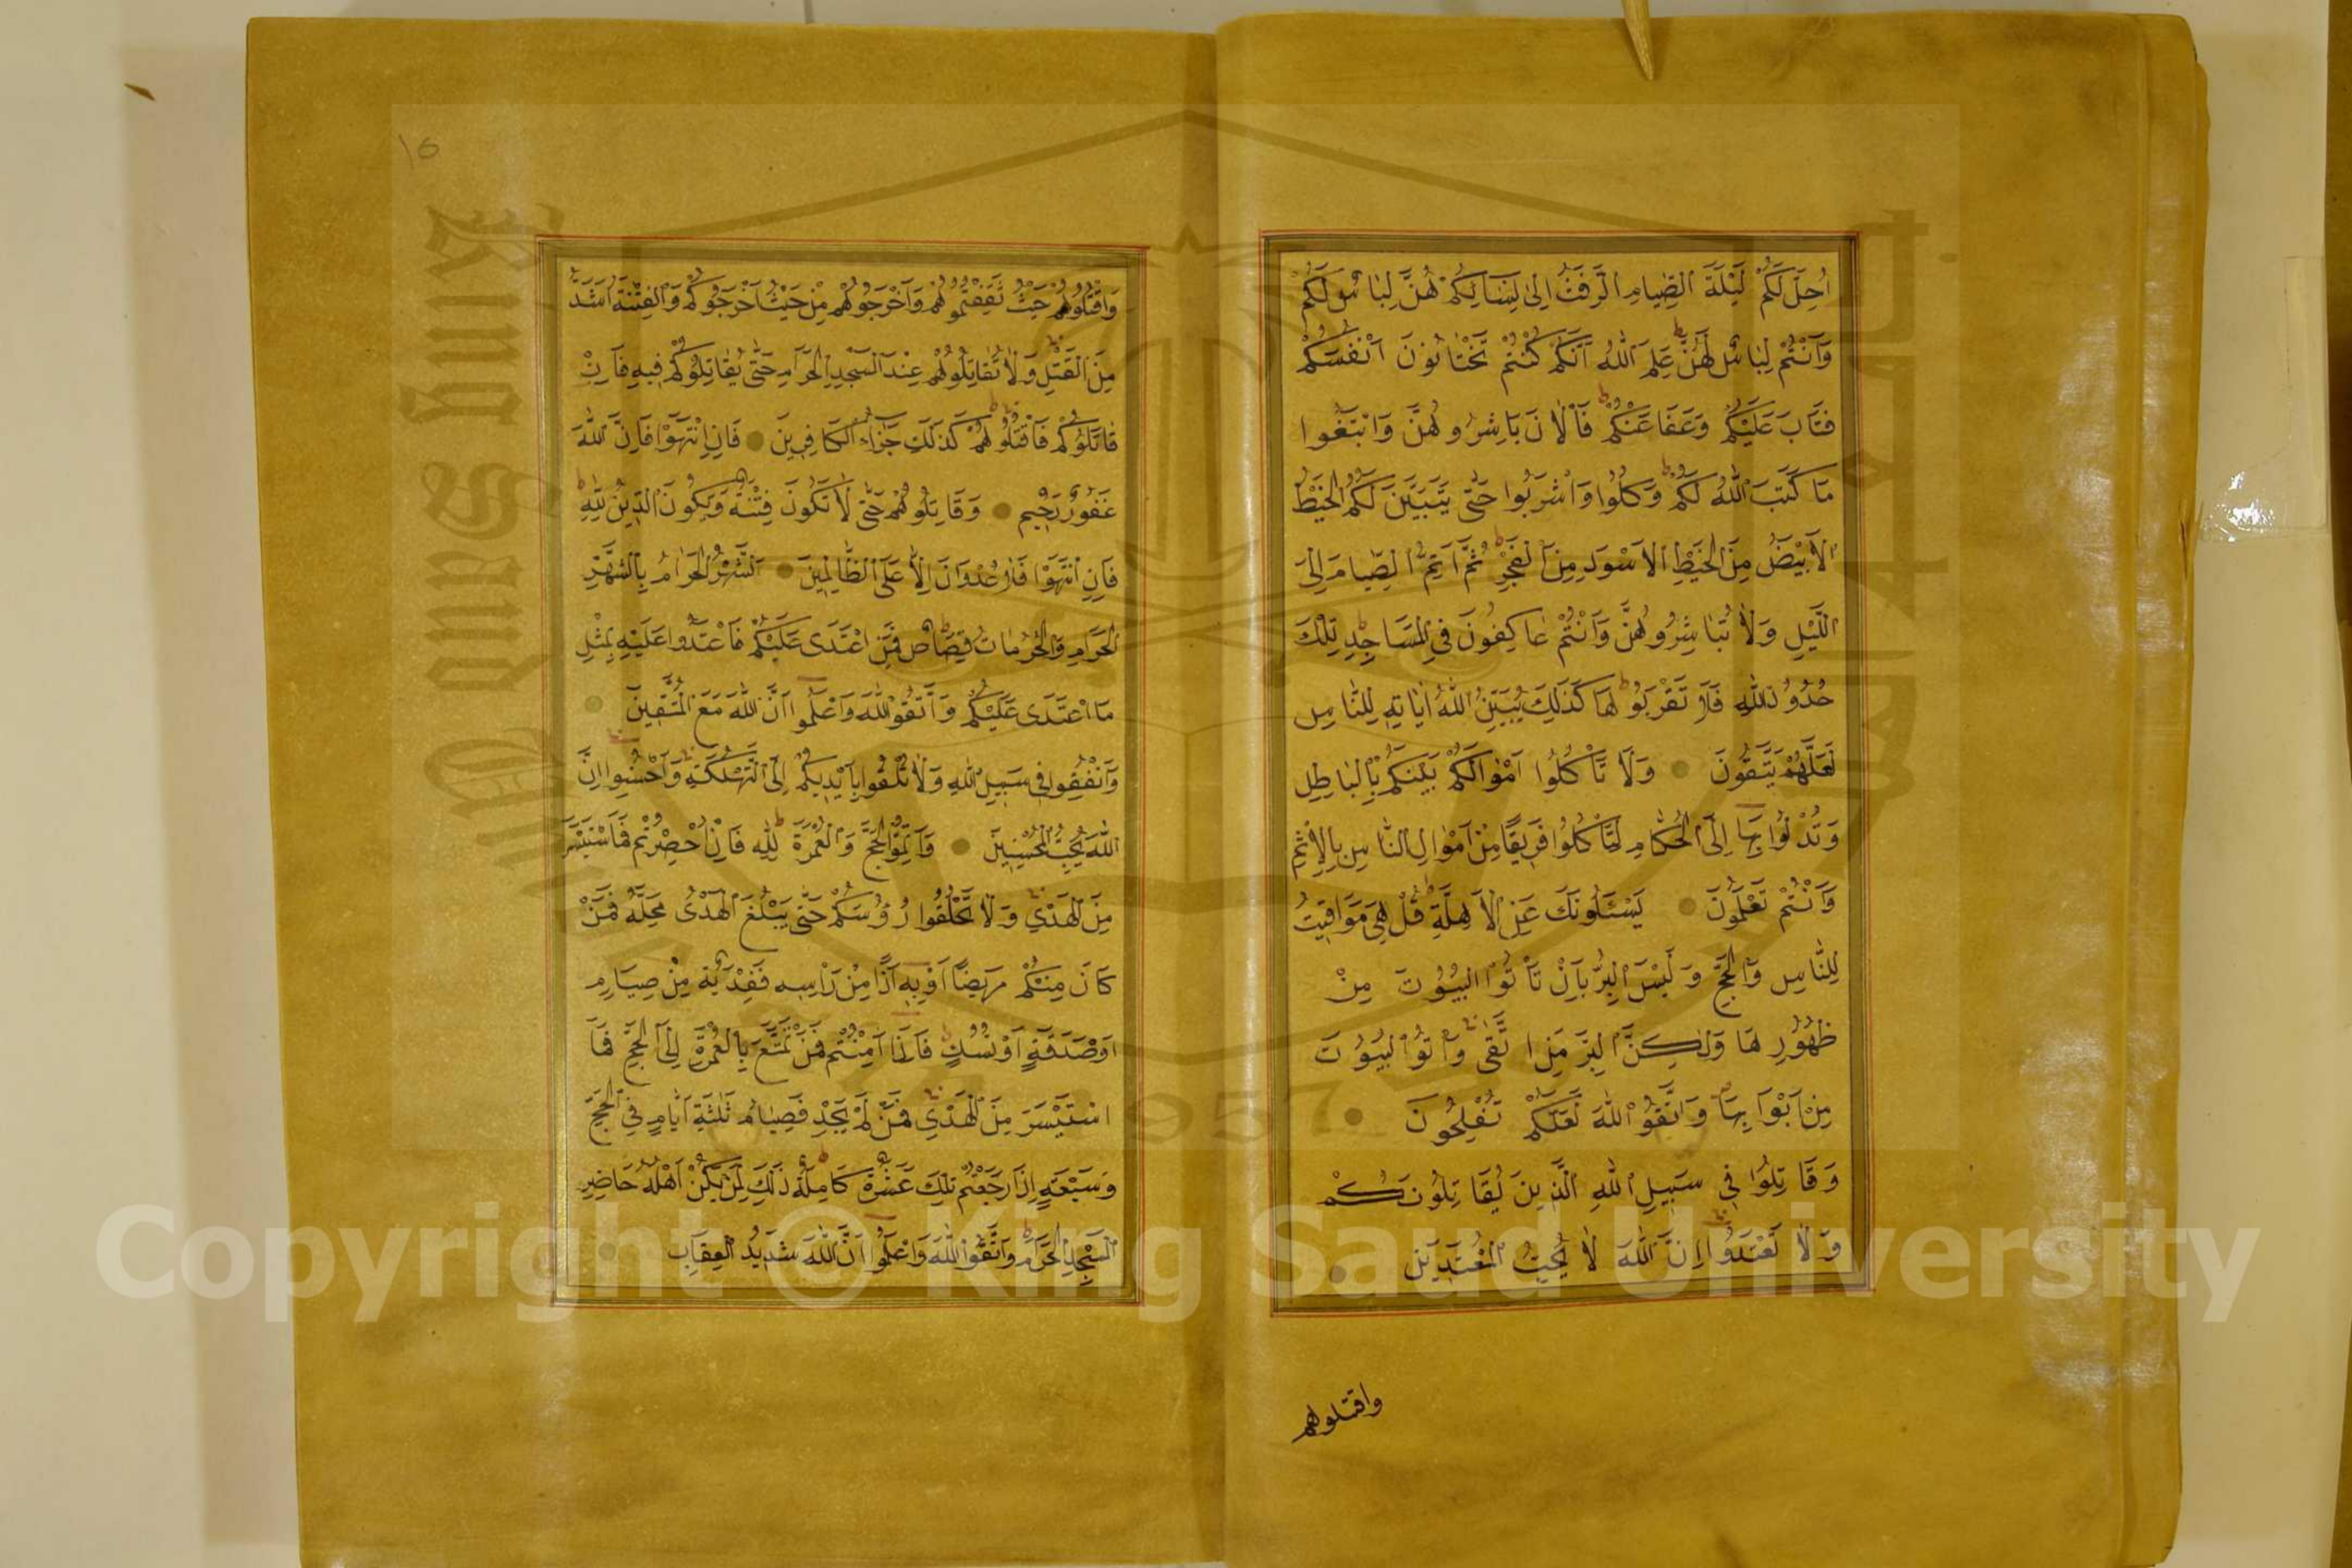 اُحِلَّ لَكُمْ لَيْلَةَ الصِّيَامِ الرَّفَثُ اِلٰى نِسَائِكُمْ هُنَّ لِبَاسٌ لَكُمْ
وَاَنْتُمْ لِبَاسٌ لَهُنَّ عَلِمَ اللّٰهُ اَنَّكُمْ كُنْتُمْ تَخْتَانُونَ اَنْفُسَكُمْ
فَتَابَ عَلَيْكُمْ وَعَفَا عَنْكُمْ فَالْاٰنَ بَاشِرُوهُنَّ وَابْتَغُوا
مَا كَتَبَ اللّٰهُ لَكُمْ وَكُلُوا وَاشْرَبُوا حَتّٰى يَتَبَيَّنَ لَكُمُ الْخَيْطُ
الْاَبْيَضُ مِنَ الْخَيْطِ الْاَسْوَدِ مِنَ الْفَجْرِ ثُمَّ اَتِمُّ الصِّيَامَ اِلَى
الَّيْلِ وَلَا تُبَاشِرُوهُنَّ وَاَنْتُمْ عَاكِفُونَ فِي الْمَسَاجِدِ تِلْكَ
حُدُودُ اللّٰهِ فَلَا تَقْرَبُوهَا كَذٰلِكَ يُبَيِّنُ اللّٰهُ اٰيَاتِهِ لِلنَّاسِ
لَعَلَّهُمْ يَتَّقُونَ وَلَا تَأْكُلُوا اَمْوَالَكُمْ بَيْنَكُمْ بِالْبَاطِلِ
وَتُدْلُوا بِهَا اِلَى الْحُكَّامِ لِتَأْكُلُوا فَرِيقًا مِنْ اَمْوَالِ النَّاسِ بِالْاِثْمِ
وَاَنْتُمْ تَعْلَمُونَ يَسْئَلُونَكَ عَنِ الْاَهِلَّةِ قُلْ هِيَ مَوَاقِيتُ
لِلنَّاسِ وَالْحَجِّ وَلَيْسَ الْبِرُّ بِاَنْ تَأْتُوا الْبُيُوتَ مِنْ
ظُهُورِهَا وَلٰكِنَّ الْبِرَّ مَنِ اتَّقٰى وَأْتُوا الْبُيُوتَ
مِنْ اَبْوَابِهَا وَاتَّقُوا اللّٰهَ لَعَلَّكُمْ تُفْلِحُونَ
وَقَاتِلُوا فِي سَبِيلِ اللّٰهِ الَّذِينَ يُقَاتِلُونَكُمْ
وَلَا تَعْتَدُوا اِنَّ اللّٰهَ لَا يُحِبُّ الْمُعْتَدِينَ
واقتلوهم
١٥
وَاقْتُلُوهُمْ حَيْثُ ثَقِفْتُمُوهُمْ وَاَخْرِجُوهُمْ مِنْ حَيْثُ اَخْرَجُوكُمْ وَالْفِتْنَةُ اَشَدُّ
مِنَ الْقَتْلِ وَلَا تُقَاتِلُوهُمْ عِنْدَ الْمَسْجِدِ الْحَرَامِ حَتّٰى يُقَاتِلُوكُمْ فِيهِ فَاِنْ
قَاتَلُوكُمْ فَاقْتُلُوهُمْ كَذٰلِكَ جَزَاءُ الْكَافِرِينَ فَاِنِ انْتَهَوْا فَاِنَّ اللّٰهَ
غَفُورٌ رَحِيمٌ وَقَاتِلُوهُمْ حَتّٰى لَا تَكُونَ فِتْنَةٌ وَيَكُونَ الدِّينُ لِلّٰهِ
فَاِنِ انْتَهَوْا فَلَا عُدْوَانَ اِلَّا عَلَى الظَّالِمِينَ اَلشَّهْرُ الْحَرَامُ بِالشَّهْرِ
الْحَرَامِ وَالْحُرُمَاتُ قِصَاصٌ فَمَنِ اعْتَدٰى عَلَيْكُمْ فَاعْتَدُوا عَلَيْهِ بِمِثْلِ
مَا اعْتَدٰى عَلَيْكُمْ وَاتَّقُوا اللّٰهَ وَاعْلَمُوا اَنَّ اللّٰهَ مَعَ الْمُتَّقِينَ
وَاَنْفِقُوا فِي سَبِيلِ اللّٰهِ وَلَا تُلْقُوا بِاَيْدِيكُمْ اِلَى التَّهْلُكَةِ وَاَحْسِنُوا اِنَّ
اللّٰهَ يُحِبُّ الْمُحْسِنِينَ وَاَتِمُّوا الْحَجَّ وَالْعُمْرَةَ لِلّٰهِ فَاِنْ اُحْصِرْتُمْ فَمَا اسْتَيْسَرَ
مِنَ الْهَدْيِ وَلَا تَحْلِقُوا رُؤُسَكُمْ حَتّٰى يَبْلُغَ الْهَدْيُ مَحِلَّهُ فَمَنْ
كَانَ مِنْكُمْ مَرِيضًا اَوْ بِهِ اَذًا مِنْ رَاْسِهِ فَفِدْيَةٌ مِنْ صِيَامٍ
اَوْ صَدَقَةٍ اَوْ نُسُكٍ فَاِذَا اَمِنْتُمْ فَمَنْ تَمَتَّعَ بِالْعُمْرَةِ اِلَى الْحَجِّ فَمَا
اسْتَيْسَرَ مِنَ الْهَدْيِ فَمَنْ لَمْ يَجِدْ فَصِيَامُ ثَلٰثَةِ اَيَّامٍ فِي الْحَجِّ
وَسَبْعَةٍ اِذَا رَجَعْتُمْ تِلْكَ عَشَرَةٌ كَامِلَةٌ ذٰلِكَ لِمَنْ لَمْ يَكُنْ اَهْلُهُ حَاضِرِي
الْمَسْجِدِ الْحَرَامِ وَاتَّقُوا اللّٰهَ وَاعْلَمُوا اَنَّ اللّٰهَ شَدِيدُ الْعِقَابِ
King Saud University
1957
Copyright © King Saud University